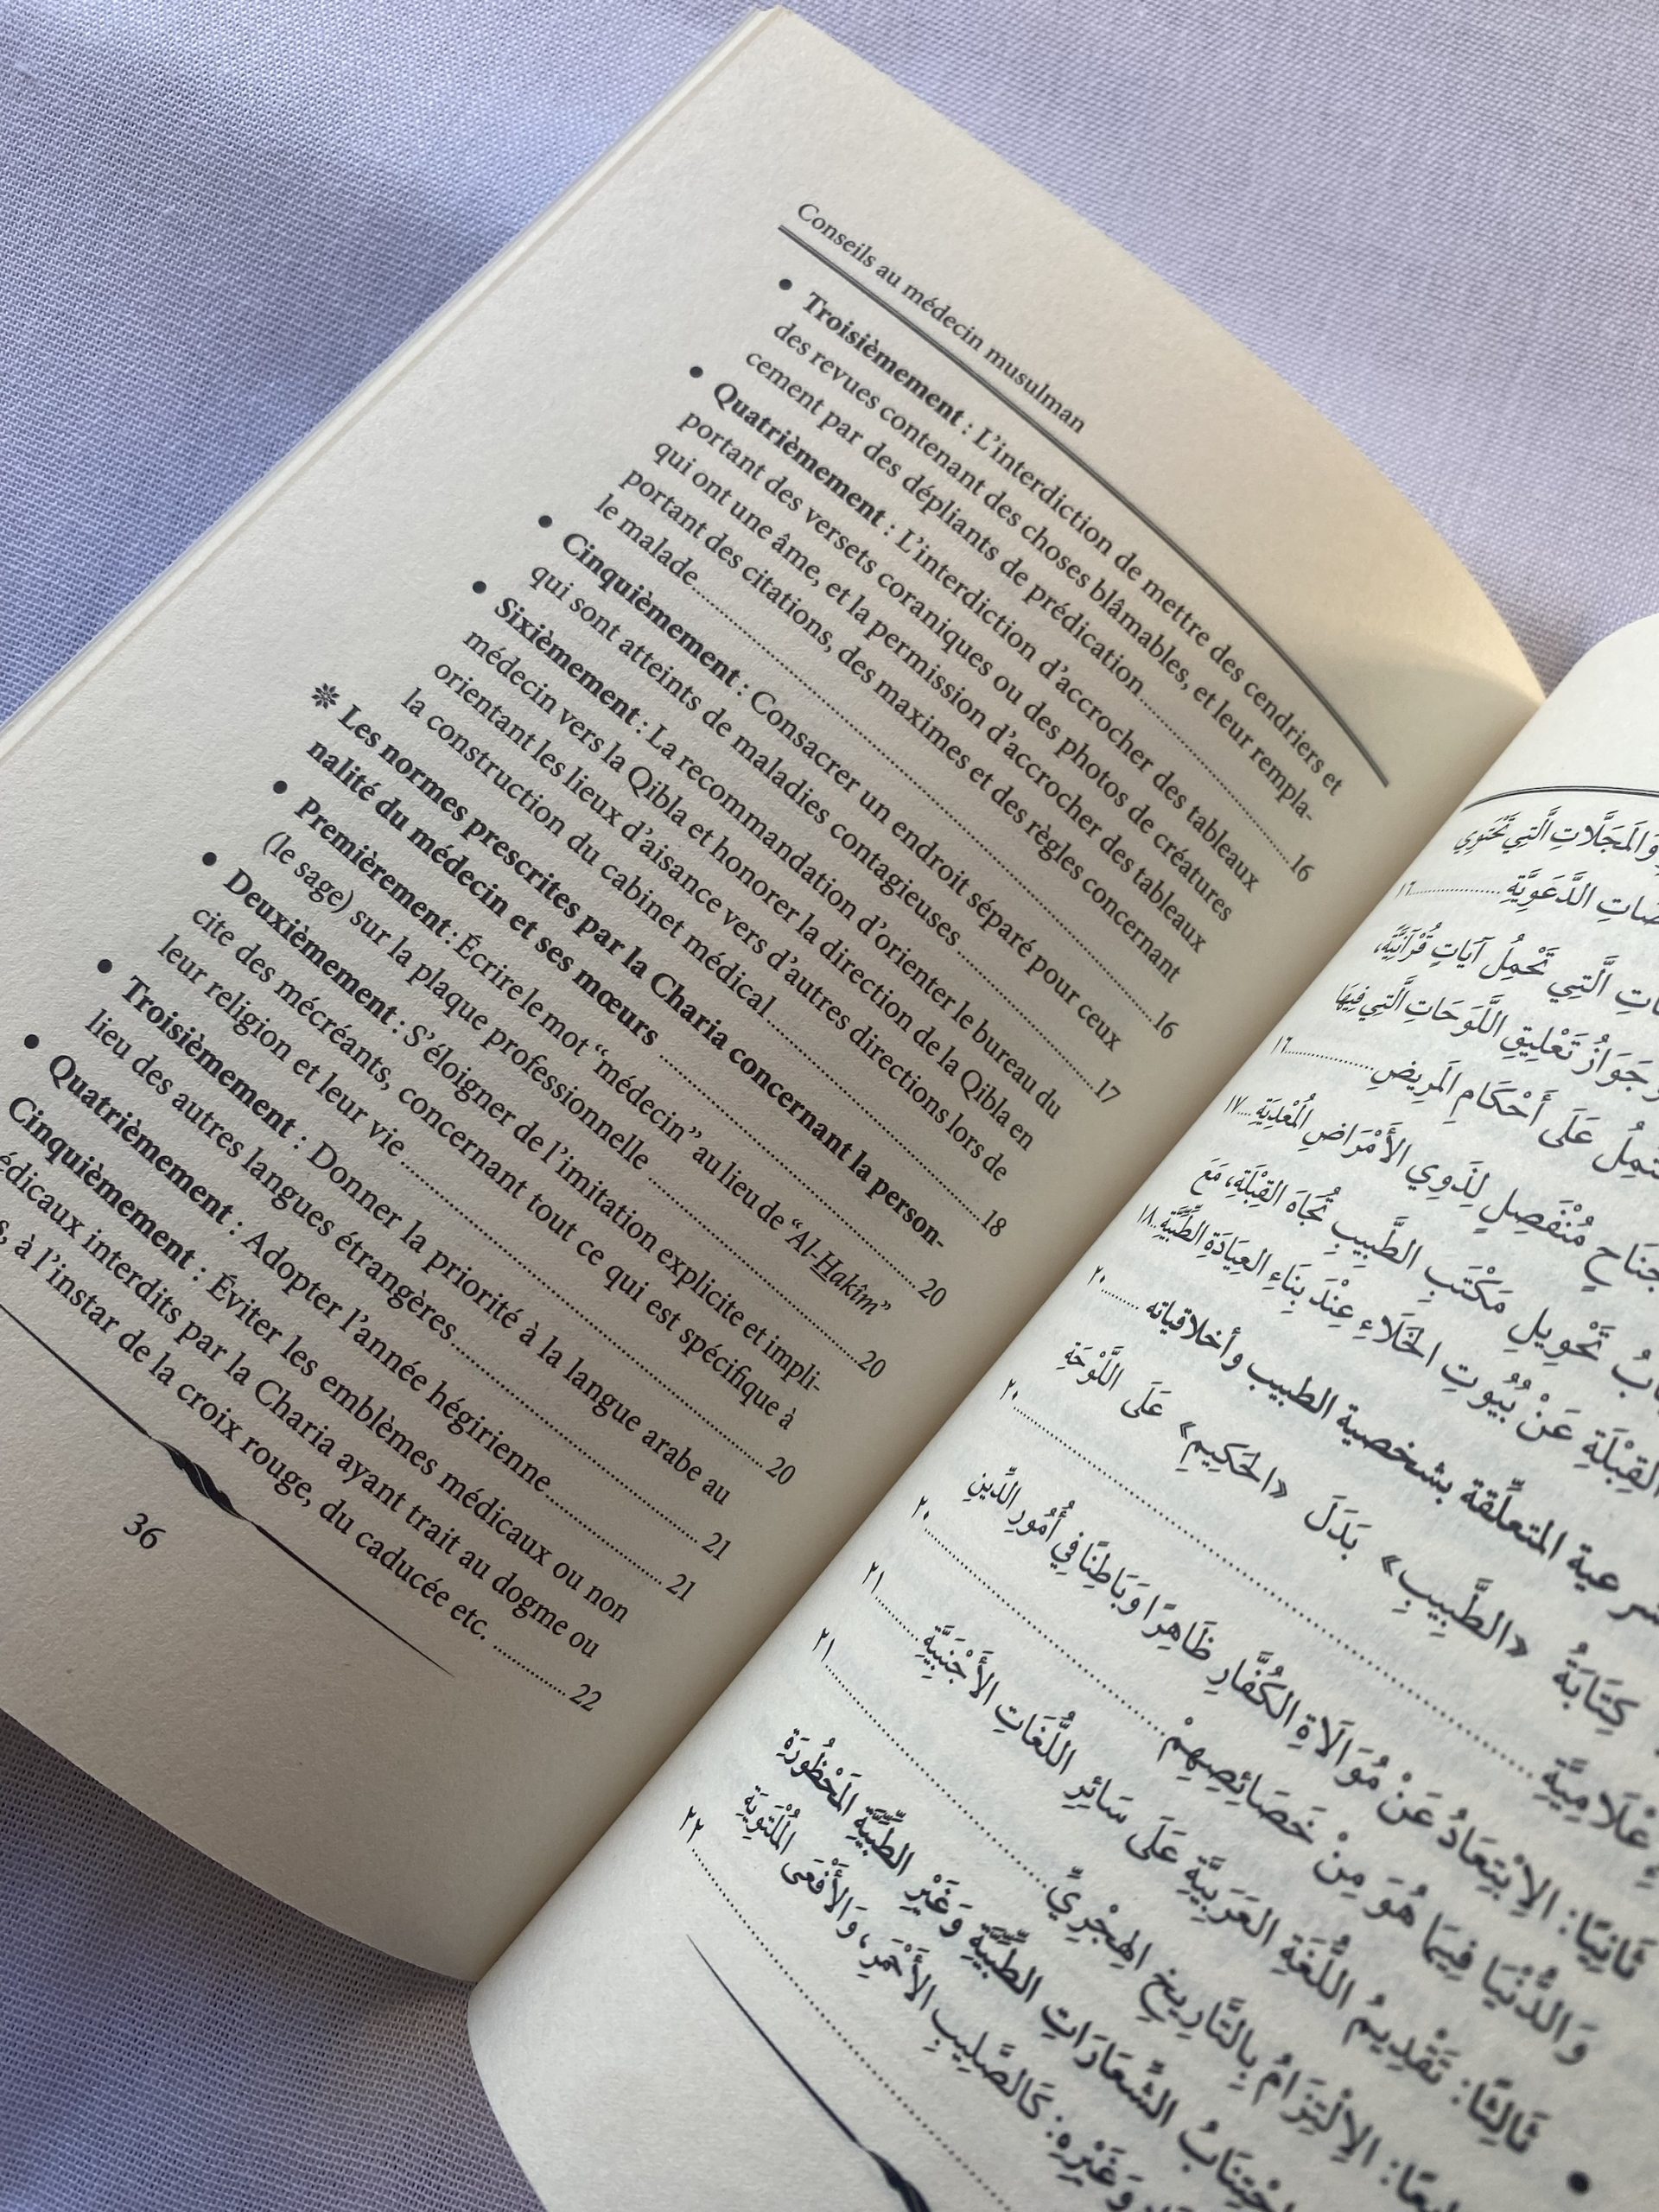 Conseils au médecin musulman
• Troisièmement : L'interdiction de mettre des cendriers et
des revues contenant des choses blâmables, et leur rempla-
cement par des dépliants de prédication ........ 16
• Quatrièmement : L'interdiction d'accrocher des tableaux
portant des versets coraniques ou des photos de créatures
qui ont une âme, et la permission d'accrocher des tableaux
portant des citations, des maximes et des règles concernant
le malade ........ 16
• Cinquièmement : Consacrer un endroit séparé pour ceux
qui sont atteints de maladies contagieuses ........ 17
• Sixièmement : La recommandation d'orienter le bureau du
médecin vers la Qibla et honorer la direction de la Qibla en
orientant les lieux d'aisance vers d'autres directions lors de
la construction du cabinet médical ........ 18
❊ Les normes prescrites par la Charia concernant la person-
nalité du médecin et ses mœurs ........ 20
• Premièrement : Écrire le mot “médecin” au lieu de “Al-Hakîm”
(le sage) sur la plaque professionnelle ........ 20
• Deuxièmement : S'éloigner de l'imitation explicite et impli-
cite des mécréants, concernant tout ce qui est spécifique à
leur religion et leur vie ........ 20
• Troisièmement : Donner la priorité à la langue arabe au
lieu des autres langues étrangères ........ 21
• Quatrièmement : Adopter l'année hégirienne ........ 21
Cinquièmement : Éviter les emblèmes médicaux ou non
édicaux interdits par la Charia ayant trait au dogme ou
, à l'instar de la croix rouge, du caducée etc. ........ 22
36
وَالمَجَلَّاتِ الَّتِي تَحْتَوِي
الدَّعَوِيَّةِ ........ ١٦
الَّتِي تَحْمِلُ آيَاتٍ قُرْآنِيَّةً،
جَوَازُ تَعْلِيقِ اللَّوَحَاتِ الَّتِي فِيهَا
عَلَى أَحْكَامِ المَرِيضِ ........ ١٦
مُنْفَصِلٍ لِذَوِي الأَمْرَاضِ المُعْدِيَةِ .... ١٧
تَحْوِيلِ مَكْتَبِ الطَّبِيبِ تُجَاهَ القِبْلَةِ، مَعَ
القِبْلَةِ عَنْ بُيُوتِ الخَلَاءِ عِنْدَ بِنَاءِ العِيَادَةِ الطِّبِّيَّةِ .. ١٨
المتعلِّقة بشخصية الطبيب وأخلاقياته ........ ٢٠
كِتَابَةُ «الطَّبِيبِ» بَدَلَ «الحَكِيمِ» عَلَى اللَّوْحَةِ
........ ٢٠
ثَانِيًا: الِابْتِعَادُ عَنْ مُوَالَاةِ الكُفَّارِ ظَاهِرًا وَبَاطِنًا فِي أُمُورِ الدِّينِ
وَالدُّنْيَا فِيمَا هُوَ مِنْ خَصَائِصِهِمْ ........ ٢٠
• ثَالِثًا: تَقْدِيمُ اللُّغَةِ العَرَبِيَّةِ عَلَى سَائِرِ اللُّغَاتِ الأَجْنَبِيَّةِ ........ ٢١
الِالْتِزَامُ بِالتَّارِيخِ الهِجْرِيِّ ........ ٢١
اجْتِنَابُ الشِّعَارَاتِ الطِّبِّيَّةِ وَغَيْرِ الطِّبِّيَّةِ المَحْظُورَةِ
وَغَيْرِهِ: كَالصَّلِيبِ الأَحْمَرِ، وَالأَفْعَى المُلْتَوِيَةِ
........ ٢٢